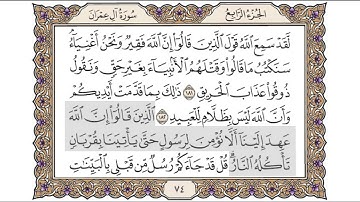 سورة آل عمران الجزء الرابع
لَّقَدْ سَمِعَ اللَّهُ قَوْلَ الَّذِينَ قَالُوا إِنَّ اللَّهَ فَقِيرٌ وَنَحْنُ أَغْنِيَاءُ
سَنَكْتُبُ مَا قَالُوا وَقَتْلَهُمُ الْأَنبِيَاءَ بِغَيْرِ حَقٍّ وَنَقُولُ
ذُوقُوا عَذَابَ الْحَرِيقِ ١٨١ ذَٰلِكَ بِمَا قَدَّمَتْ أَيْدِيكُمْ
وَأَنَّ اللَّهَ لَيْسَ بِظَلَّامٍ لِّلْعَبِيدِ ١٨٢ الَّذِينَ قَالُوا إِنَّ اللَّهَ
عَهِدَ إِلَيْنَا أَلَّا نُؤْمِنَ لِرَسُولٍ حَتَّىٰ يَأْتِيَنَا بِقُرْبَانٍ
تَأْكُلُهُ النَّارُ قُلْ قَدْ جَاءَكُمْ رُسُلٌ مِّن قَبْلِي بِالْبَيِّنَاتِ
٧٤